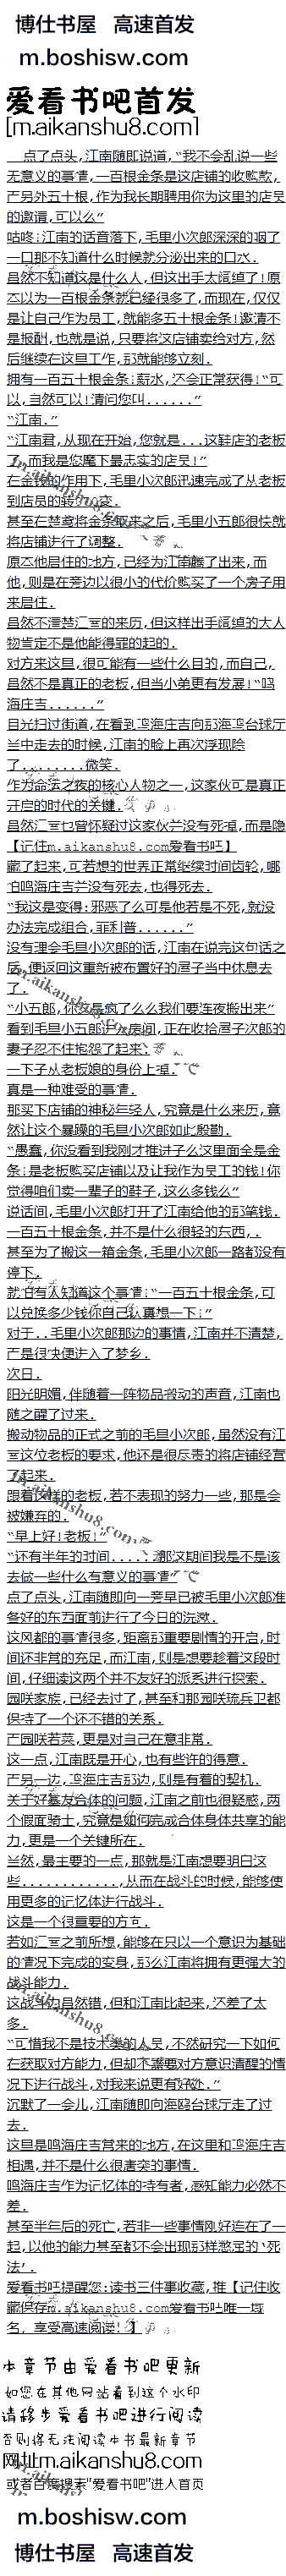 博仕书屋 高速首发
m.boshisw.com
爱看书吧首发
[m.aikanshu8.com]
点了点头,江南随即说道,“我不会乱说一些
无意义的事情,一百根金条是这店铺的收购款,
另外五十根,作为我长期聘用你为这里的店员
的邀请,可以么”
咕咚:江南的话音落下,毛里小次郎深深的咽了
一口那不知道什么时候就分泌出来的口水.
虽然不知道这是什么人,但这出手太阔绰了!原
本以为一百根金条就已经很多了,而现在,仅仅
是让自己作为员工,就能多五十根金条!邀请不
是报酬,也就是说,只要将这店铺卖给对方,然
后继续在这里工作,那就能够立刻.
拥有一百五十根金条:薪水,还会正常获得!“可
以,当然可以!请问您叫......”
“江南.”
“江南君,从现在开始,您就是...这鞋店的老板
了,而我是您麾下最忠实的店员!”
在金钱的作用下,毛里小次郎迅速完成了从老板
到店员的转变.
甚至在楚鸢将金条取来之后,毛里小五郎很快就
将店铺进行了调整.
原本他居住的地方,已经为江南腾了出来,而
他,则是在旁边以很小的代价购买了一个房子用
来居住.
虽然不清楚江南的来历,但这样出手阔绰的大人
物肯定不是他能得罪的起的.
对方来这里,很可能有一些什么目的,而自己,
虽然不是真正的老板,但当小弟更有发展!“鸣
海庄吉......”
目光扫过街道,在看到鸣海庄吉向那海鸥台球厅
当中走去的时候,江南的脸上再次浮现除
了........微笑.
作为命运之夜的核心人物之一,这家伙可是真正
开启的时代的关键.
虽然江南也曾怀疑过这家伙并没有死掉,而是隐
【记住m.aikanshu8.com爱看书吧】
藏了起来,可若想的世界正常继续时间齿轮,哪
怕鸣海庄吉并没有死去,也得死去.
“我这是变得:邪恶了么可是他若是不死,就没
办法完成组合,菲利普......”
没有理会毛里小次郎的话,江南在说完这句话之
后,便返回这重新被布置好的屋子当中休息去
了.
“小五郎,你这是疯了么我们要连夜搬出来”
看到毛里小五郎的房间,正在收拾屋子次郎的
妻子忍不住抱怨了起来.
一下子从老板娘的身份上掉.
真是一种难受的事情.
那买下店铺的神秘年轻人,究竟是什么来历,竟
然让这个暴躁的毛里小次郎如此殷勤.
“愚蠢,你没看到我刚才推进子么这里面全是金
条:是老板购买店铺以及让我作为员工的钱!你
觉得咱们卖一辈子的鞋子,这么多钱么”
说话间,毛里小次郎打开了江南给他的那笔钱.
一百五十根金条,并不是什么很轻的东西,.
甚至为了搬这一箱金条,毛里小次郎一路都没有
停下.
就怕有人知道这个事情:“一百五十根金条,可
以兑换多少钱你自己认真想一下:”
对于..毛里小次郎那边的事情,江南并不清楚,
而是很快便进入了梦乡.
次日.
阳光明媚,伴随着一阵物品搬动的声音,江南也
随之醒了过来.
搬动物品的正式之前的毛里小次郎,虽然没有江
南这位老板的要求,他还是很尽责的将店铺经营
了起来.
跟着这样的老板,若不表现的努力一些,那是会
被嫌弃的.
“早上好!老板!”
“还有半年的时间......那这期间我是不是该
去做一些什么有意义的事情”
点了点头,江南随即向一旁早已被毛里小次郎准
备好的东西面前进行了今日的洗漱.
这风都的事情很多,距离那重要剧情的开启,时
间还非常的充足,而江南,则是想要趁着这段时
间,仔细读这两个并不友好的派系进行探索.
园咲家族,已经去过了,甚至和那园咲琉兵卫都
保持了一个还不错的关系.
而园咲若菜,更是对自己在意非常.
这一点,江南既是开心,也有些许的得意.
而另一边,鸣海庄吉那边,则是有着的契机.
关于好基友合体的问题,江南之前也很疑惑,两
个假面骑士,究竟是如何完成合体身体共享的能
力,更是一个关键所在.
当然,最主要的一点,那就是江南想要明白这
些............,从而在战斗的时候,能够使
用更多的记忆体进行战斗.
这是一个很重要的方向.
若如江南之前所想,能够在只以一个意识为基础
的情况下完成的变身,那么江南将拥有更强大的
战斗能力.
这战斗力虽然错,但和江南比起来,还差了太
多.
“可惜我不是技术类的人员,不然研究一下如何
在获取对方能力,但却不需要对方意识清醒的情
况下进行战斗,对我来说更有好处.”
沉默了一会儿,江南随即向海鸥台球厅走了过
去.
这里是鸣海庄吉常来的地方,在这里和鸣海庄吉
相遇,并不是什么很唐突的事情.
鸣海庄吉作为记忆体的持有者,感知能力必然不
差.
甚至半年后的死亡,若非一些事情刚好连在了一
起,以他的能力甚至都不会出现那样憋屈的‘死
法’.
爱看书吧提醒您:读书三件事收藏,推【记住收
藏保存m.aikanshu8.com爱看书吧唯一域
名, 享受高速阅读!】
本章节由爱看书吧更新
如您在其他网站看到这个水印
请移步爱看书吧进行阅读
否则将无法阅读本书最新章节
网址m.aikanshu8.com
或者百度搜索“爱看书吧”进入首页
m.boshisw.com
博仕书屋 高速首发